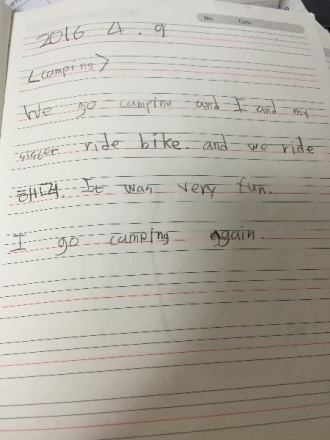 No. Date
2016 4. 9
<camping>
We go camping and I and my
sister ride bike. and we ride
It was very fun.
I go camping again.